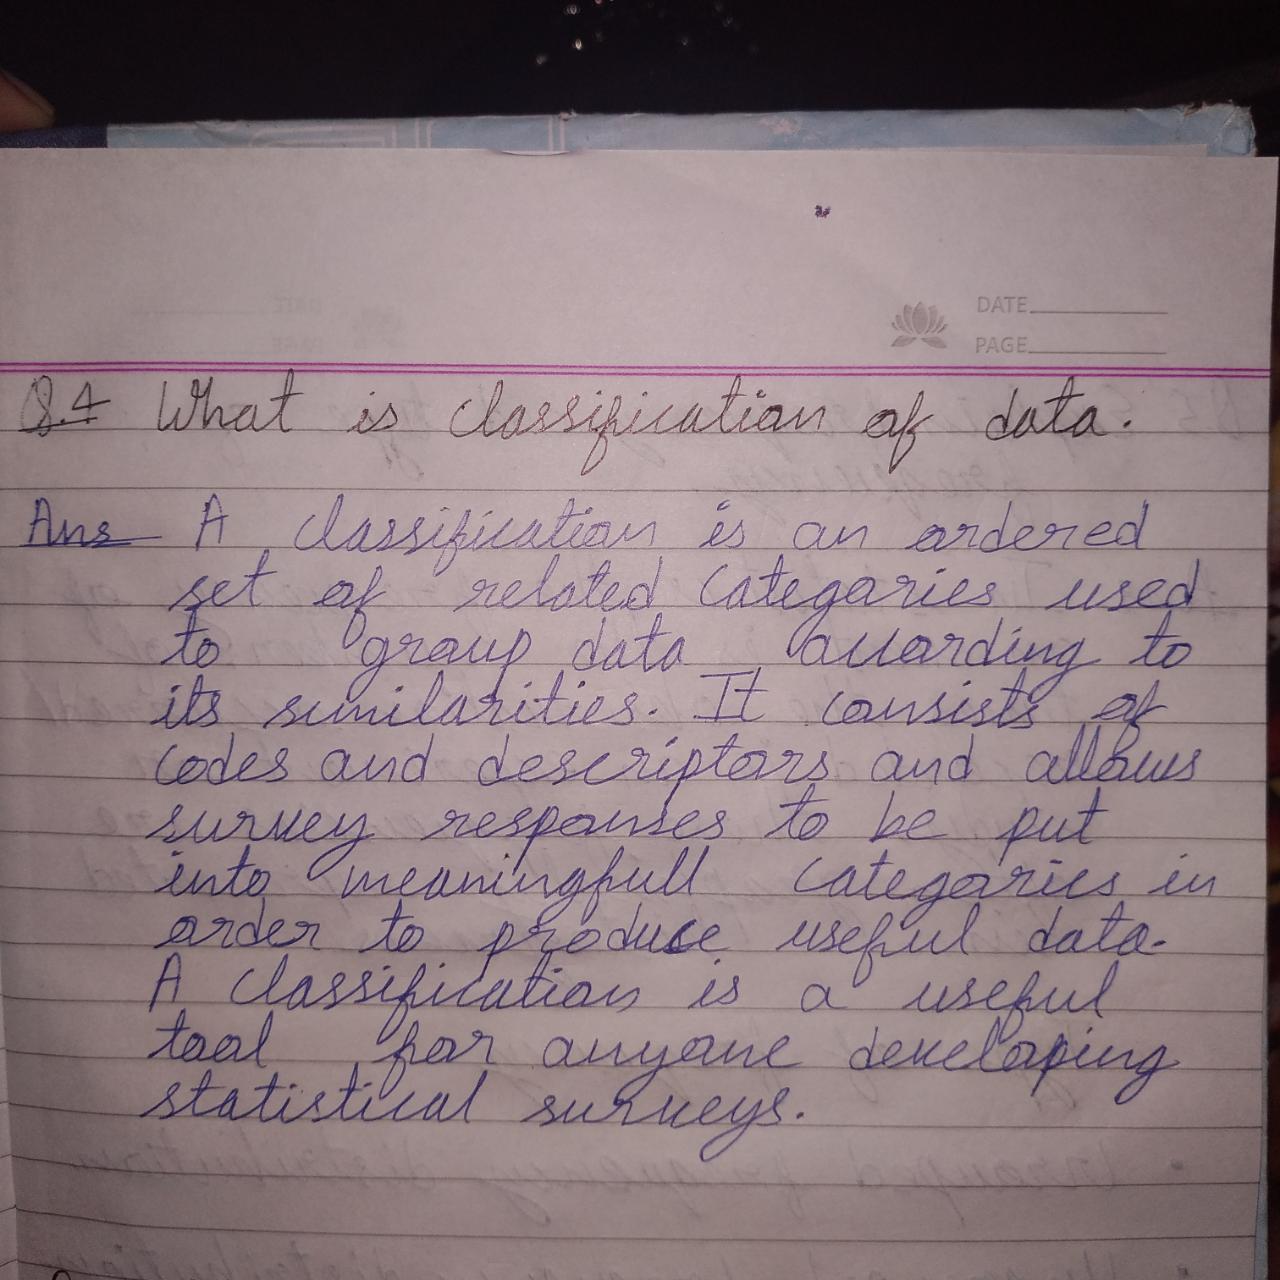 DATE
PAGE
Q.4 What is classification of data.
Ans A classification is an ordered
set of related categories used
to group data according to
its similarities. It consists of
codes and descriptors and allows
survey responses to be put
into meaningfull categories in
order to produce useful data.
A classification is a useful
tool for anyone developing
statistical surveys.